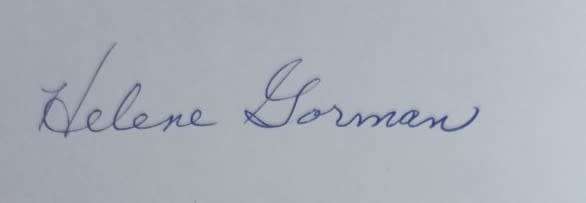 Helene Gorman